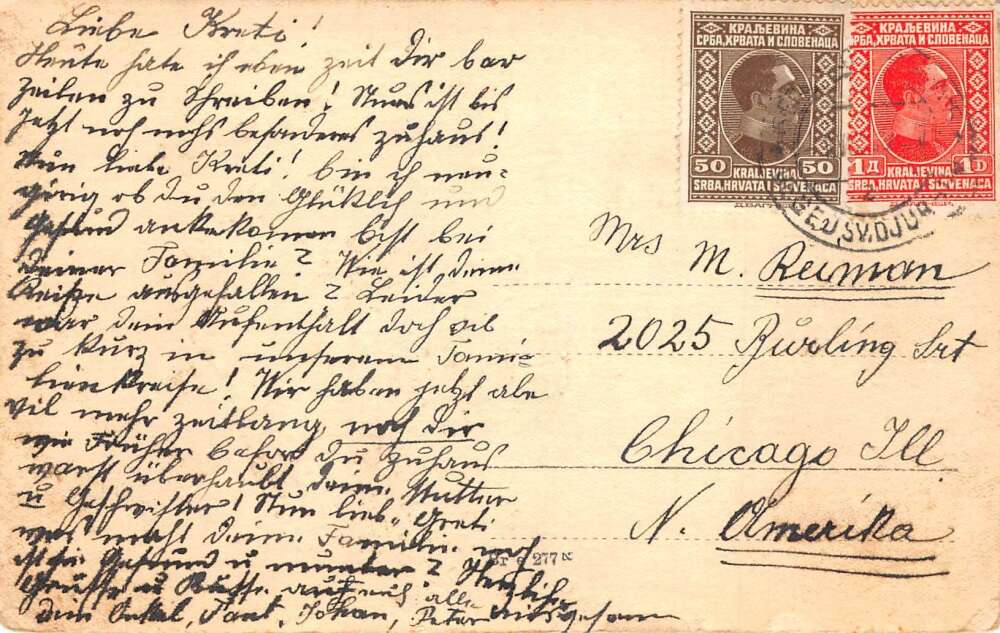 Liebe Kreti!
Heute hate ich eben zeit Dir bar
Zeilen zu Schreiben! Nuns ist bis
Jetzt noch nichs besonderes zuhaus!
Nun liebe Kreti! bin ich neu-
gürig ob du den Glüklich und
Gesund ankekomen bist bei
deiner Familie? Wie ist deine
Reise ausgefallen? Leider
war dein Aufenthalt doch vil
zu kurz in unserem Fami-
lienkreise! Wir haben jetzt ale
vil mehr zeitlang nach Dir
wie Früher befor du zuhaus
warst überhaubt deine Mutter
u Geschwister! Nun lieb Greti
was macht deine Familie noch
Gesund u munter? Herzliche
Grüsse u Küsse auf euch alle
dein Onkel, Tant, Johan, Peter
КРАЉЕВИНА
СРБА, ХРВАТА И СЛОВЕНАЦА
50 50
KRALJEVINA
SRBA, HRVATA I SLOVENACA
КРАЉЕВИНА
СРБА, ХРВАТА И СЛОВЕНАЦА
1Д 1D
KRALJEVINA
SRBA, HRVATA I SLOVENACA
SV. DJUR
Mrs M. Reiman
2025 Burling Srt
Chicago Ill
N. Amerika
277